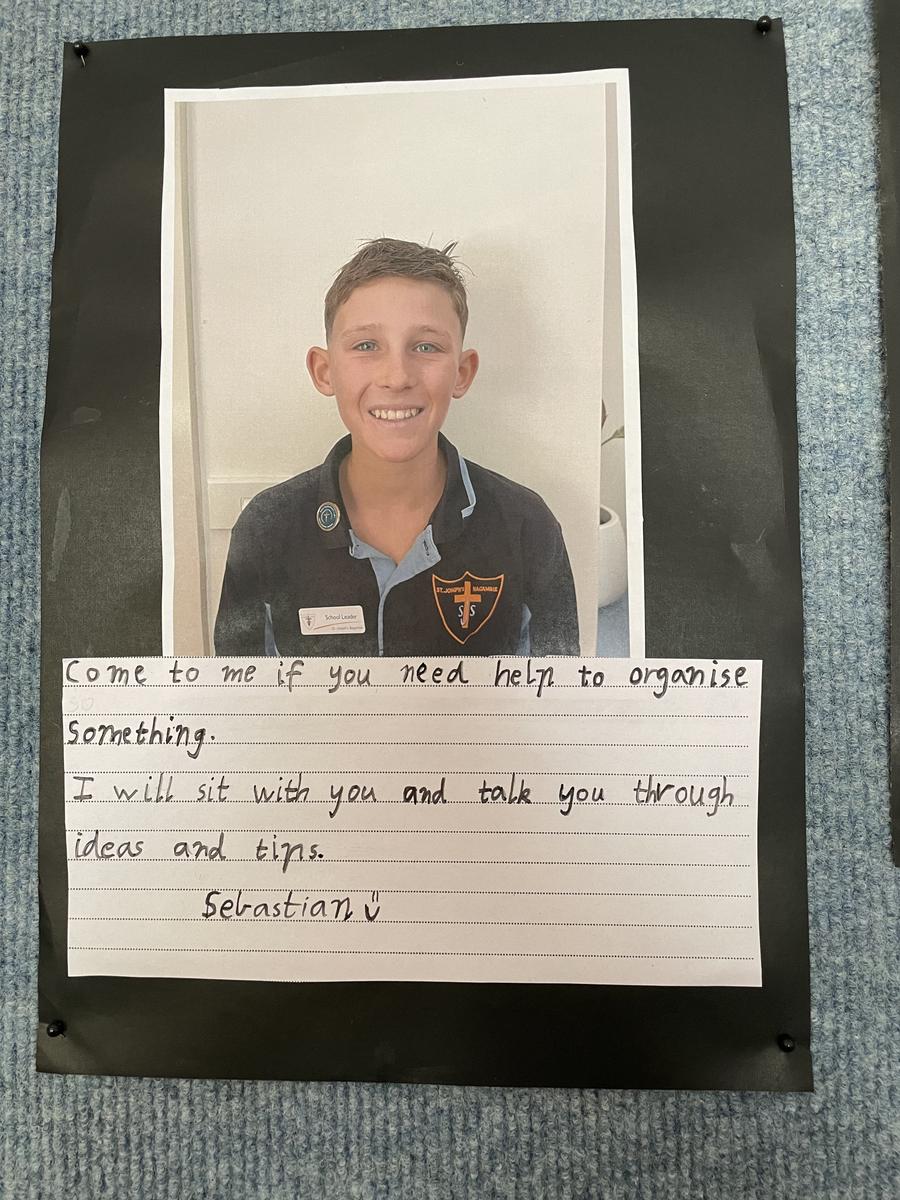 School Leader
ST. JOSEPH'S NAGAMBIE
SJS
Come to me if you need help to organise
something.
I will sit with you and talk you through
ideas and tips.
Sebastian